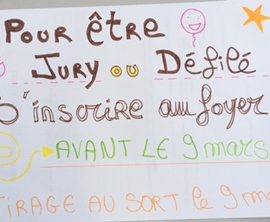 Pour être
Jury ou Défilé
S'inscrire au foyer
AVANT LE 9 mars
TIRAGE AU SORT le 9 m